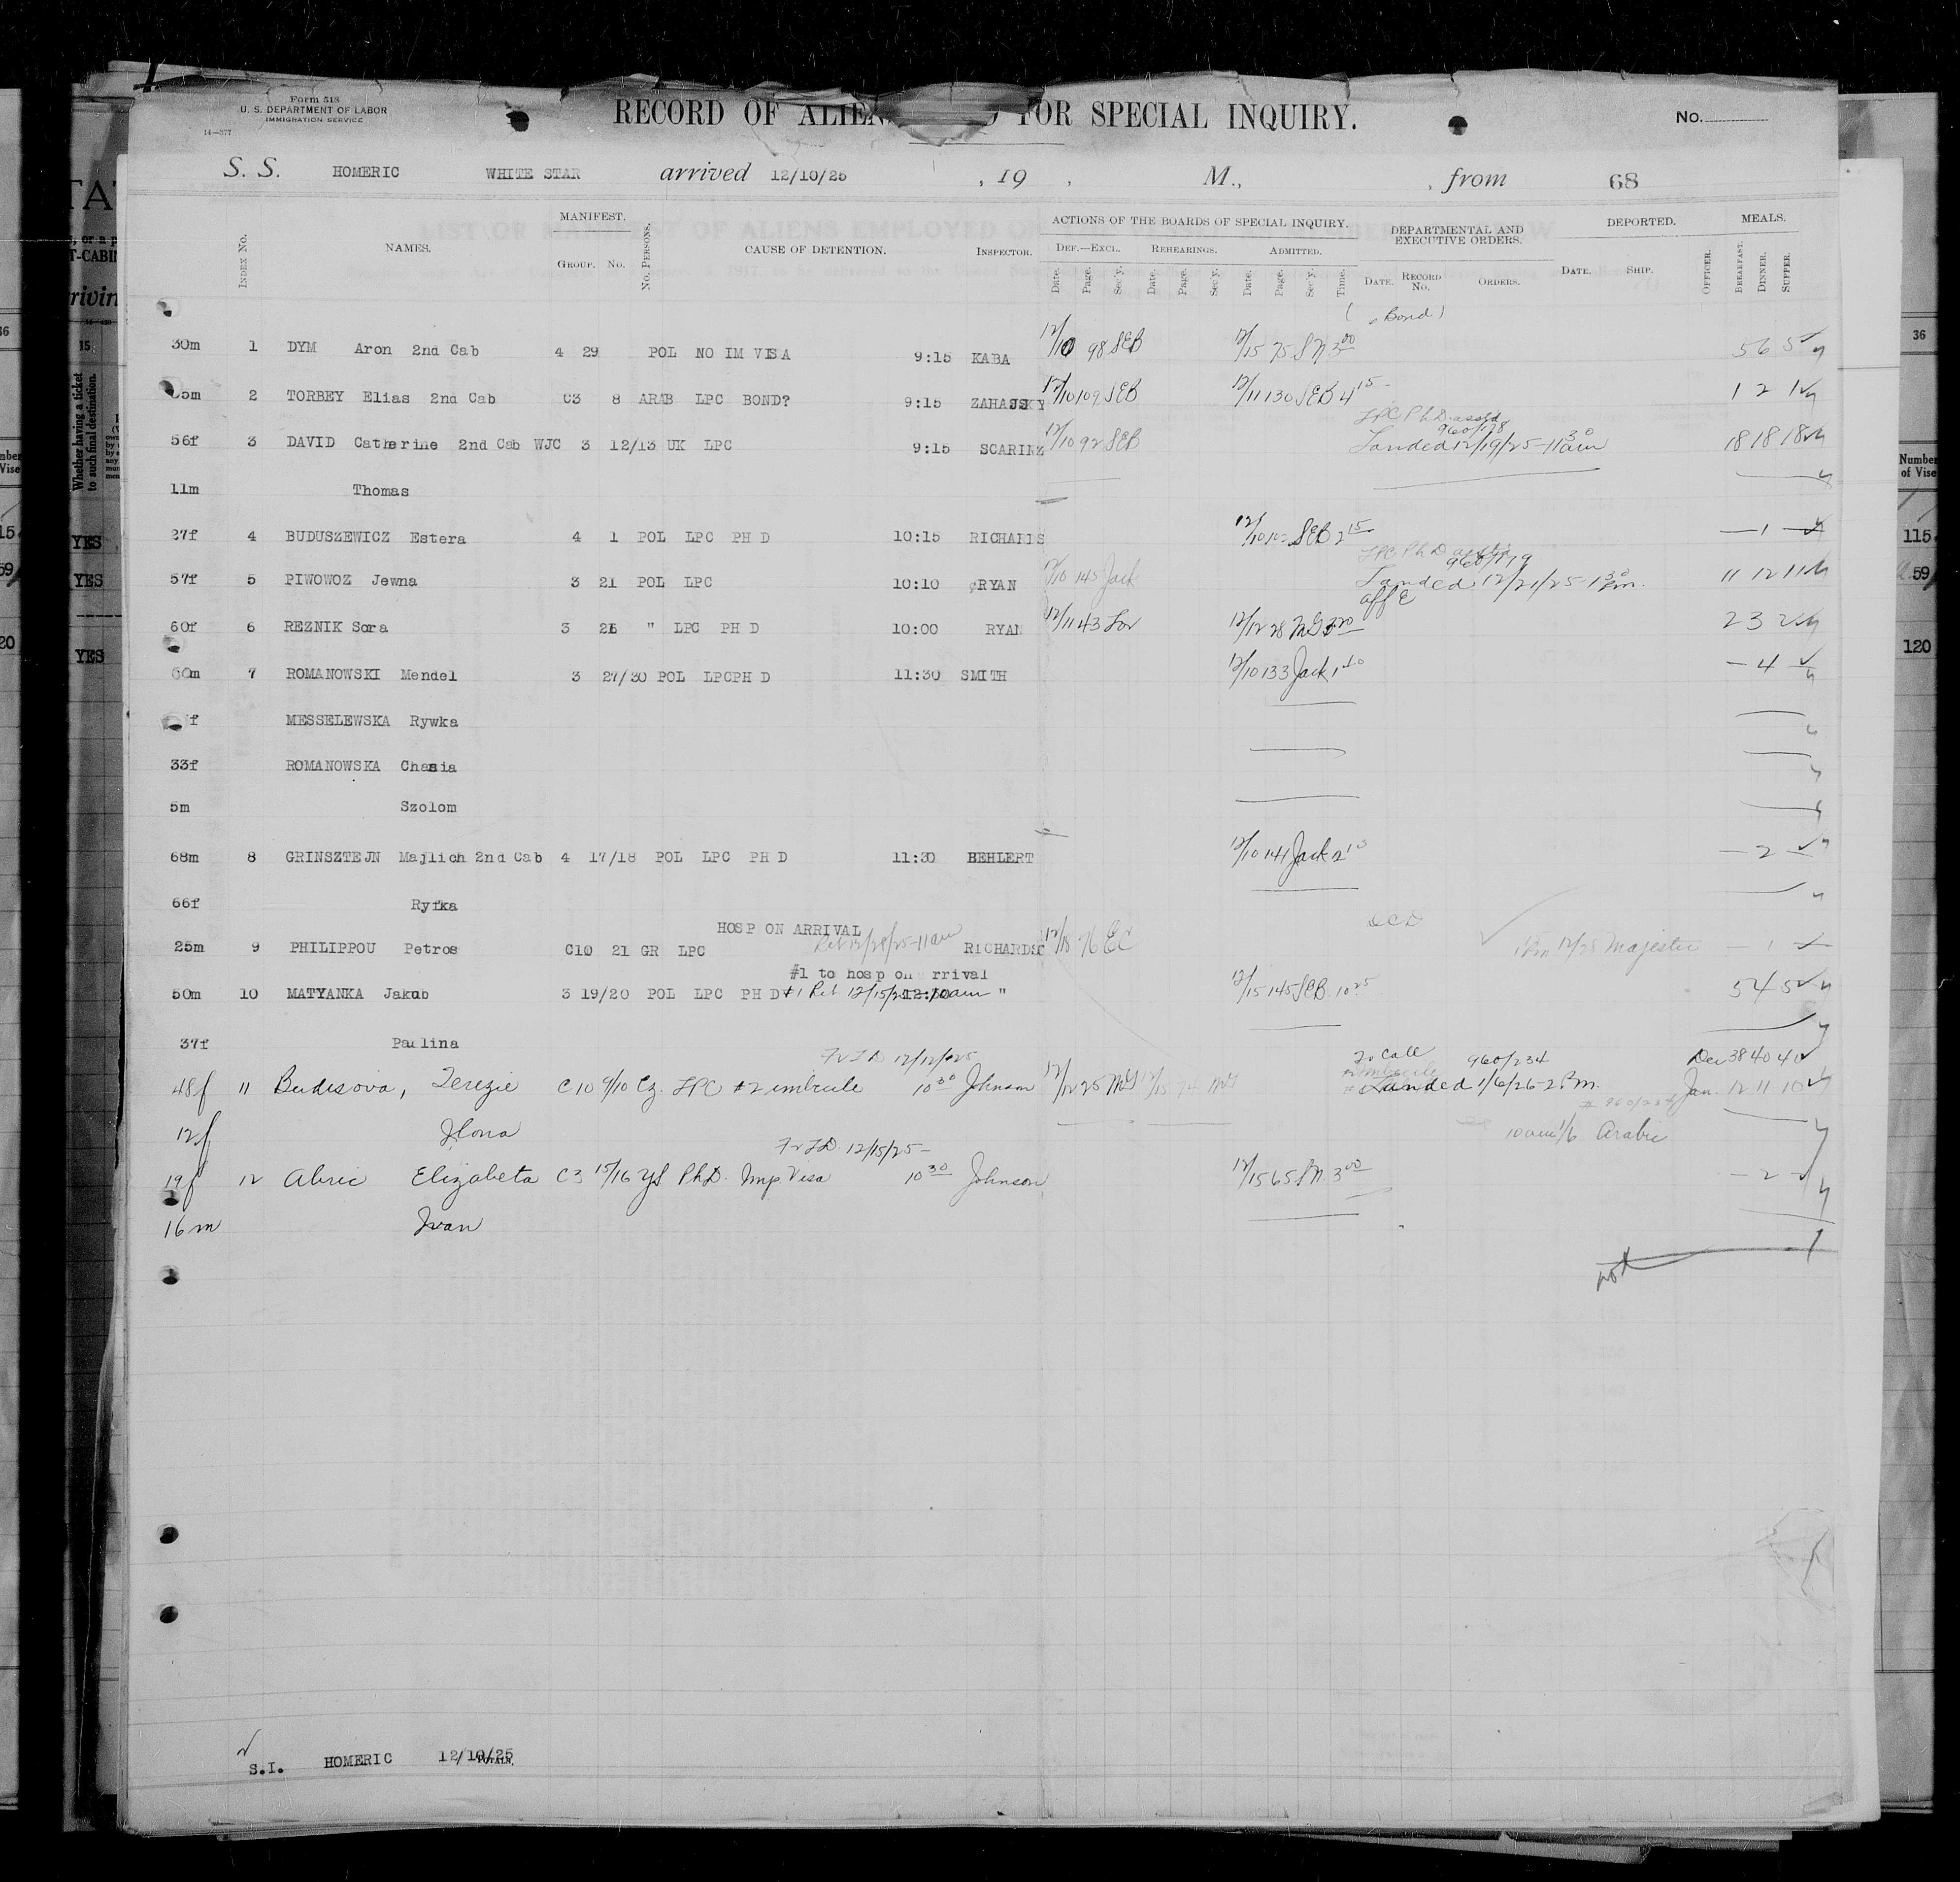 Form 518
U. S. DEPARTMENT OF LABOR
IMMIGRATION SERVICE
14—377
RECORD OF ALIENS FOR SPECIAL INQUIRY.
No.
S. S. HOMERIC WHITE STAR arrived 12/10/25 , 19 , M., , from 68
INDEX No. NAMES. MANIFEST. GROUP. No. No. PERSONS. CAUSE OF DETENTION. INSPECTOR. ACTIONS OF THE BOARDS OF SPECIAL INQUIRY. DEPARTMENTAL AND EXECUTIVE ORDERS. DEPORTED. MEALS.
DEF.—EXCL. REHEARINGS. ADMITTED.
Date. Page. Sec'y. Date. Page. Sec'y. Date. Page. Sec'y. Time. DATE. RECORD No. ORDERS. DATE. SHIP. OFFICER. BREAKFAST. DINNER. SUPPER.
( Bond )
30m 1 DYM Aron 2nd Cab 4 29 POL NO IM VISA 9:15 KABA 12/10 98 SEB 12/15 75 SN 3 00 5 6 5
5m 2 TORBEY Elias 2nd Cab C3 8 ARAB LPC BOND? 9:15 ZAHAJSKY 12/10 109 SEB 12/11 130 SEB 4 15 1 2 1
LPC PhD asstd
960/178
56f 3 DAVID Catherine 2nd Cab WJC 3 12/13 UK LPC 9:15 SCARINZ 12/10 92 SEB Landed 12/19/25-11 30 am 18 18 18
11m Thomas
27f 4 BUDUSZEWICZ Estera 4 1 POL LPC PH D 10:15 RICHARDS 12/10 102 SEB 2 15 — 1 —
LPC PhD
960/179
57f 5 PIWOWOZ Jewna 3 21 POL LPC 10:10 RYAN 12/10 145 Jack Landed 12/21/25-1 30 Pm. 11 12 11
60f 6 REZNIK Sora 3 26 " LPC PH D 10:00 RYAN 12/11 43 Lov 12/12 28 2 3 2
60m 7 ROMANOWSKI Mendel 3 27/30 POL LPCPH D 11:30 SMITH 12/10 133 Jack 1 40 — 4 —
f MESSELEWSKA Rywka
33f ROMANOWSKA Chasia
5m Szolom
68m 8 GRINSZTEJN Majlich 2nd Cab 4 17/18 POL LPC PH D 11:30 BEHLERT 12/10 141 Jack 2 10 — 2 —
66f Ryfka
HOSP ON ARRIVAL
25m 9 PHILIPPOU Petros C10 21 GR LPC RICHARDSO 12/18 76 EC 12/28 Majestic — 1 —
#1 to hosp on rrival
50m 10 MATYANKA Jakub 3 19/20 POL LPC PH D #1 Ret 12/15/25-10am " 12/15 145 SEB 10 25 5 4 5
37f Paulina
12/12/25
960/234 Dec 38 40 41
48f 11 Budisova, Terezie C10 9/10 Cz. LPC #2 imbecile 10 30 Johnson 12/12 25 McG Landed 1/6/26-2 P.m. Jan. 12 11 10
12f Ilona 10am 1/6 Arabic
12/15/25-
19f 12 Abric Elizabeta C3 15/16 YS PhD. Imp Visa 10 30 Johnson 12/15 65 SN. 3 00 — 2 —
16m Ivan
S.I. HOMERIC 12/10/25
36
Number of Vise
115
59
120
YES
YES
YES
Whether having a ticket to such final destination.